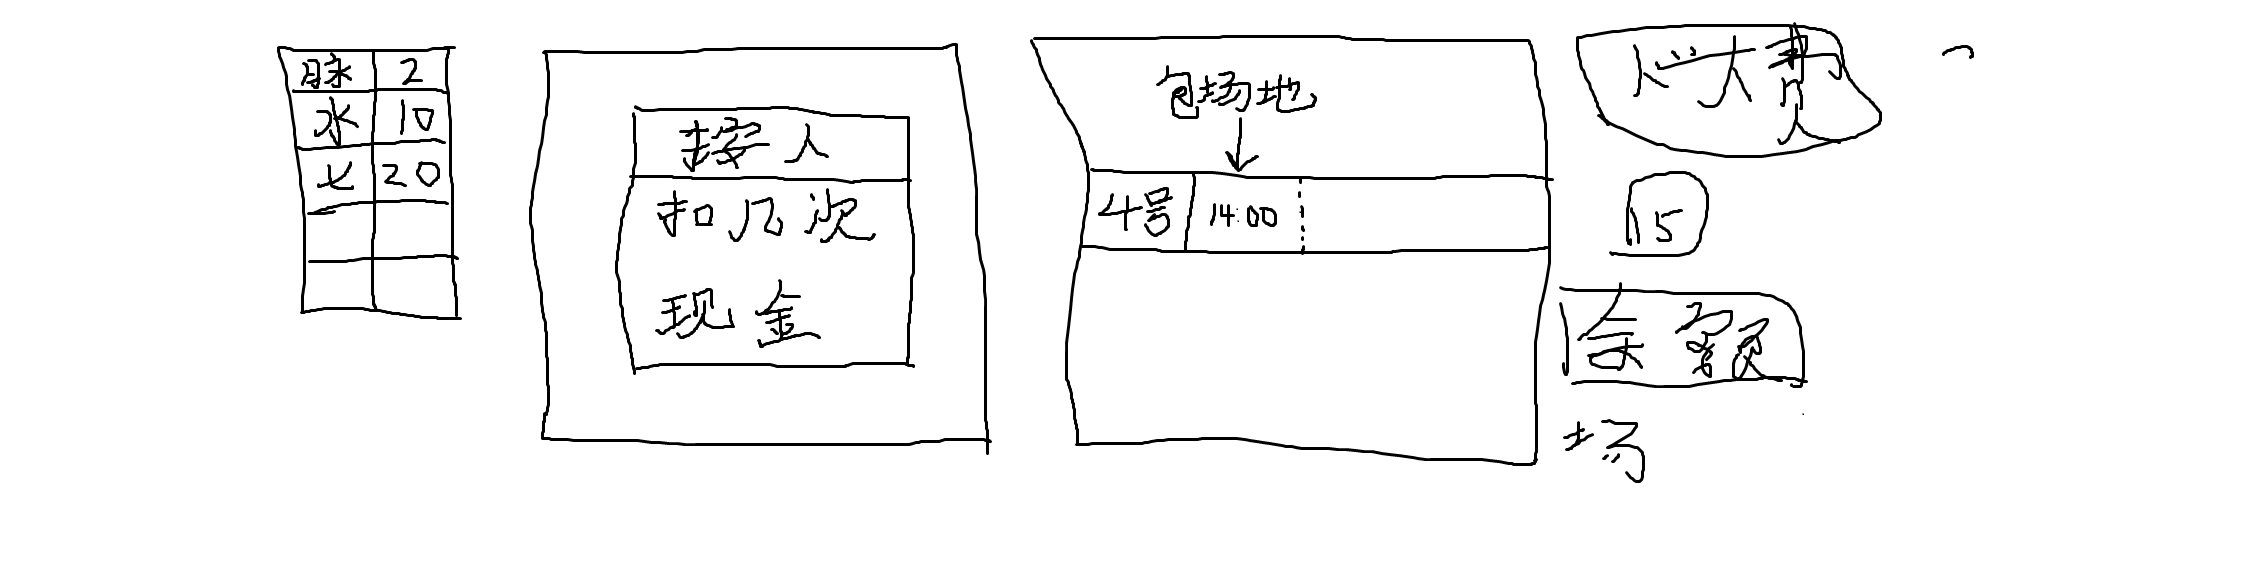 脉 2
水 10
七 20
按人
扣几次
现金
包场地
4号 14:00
15
余额
场